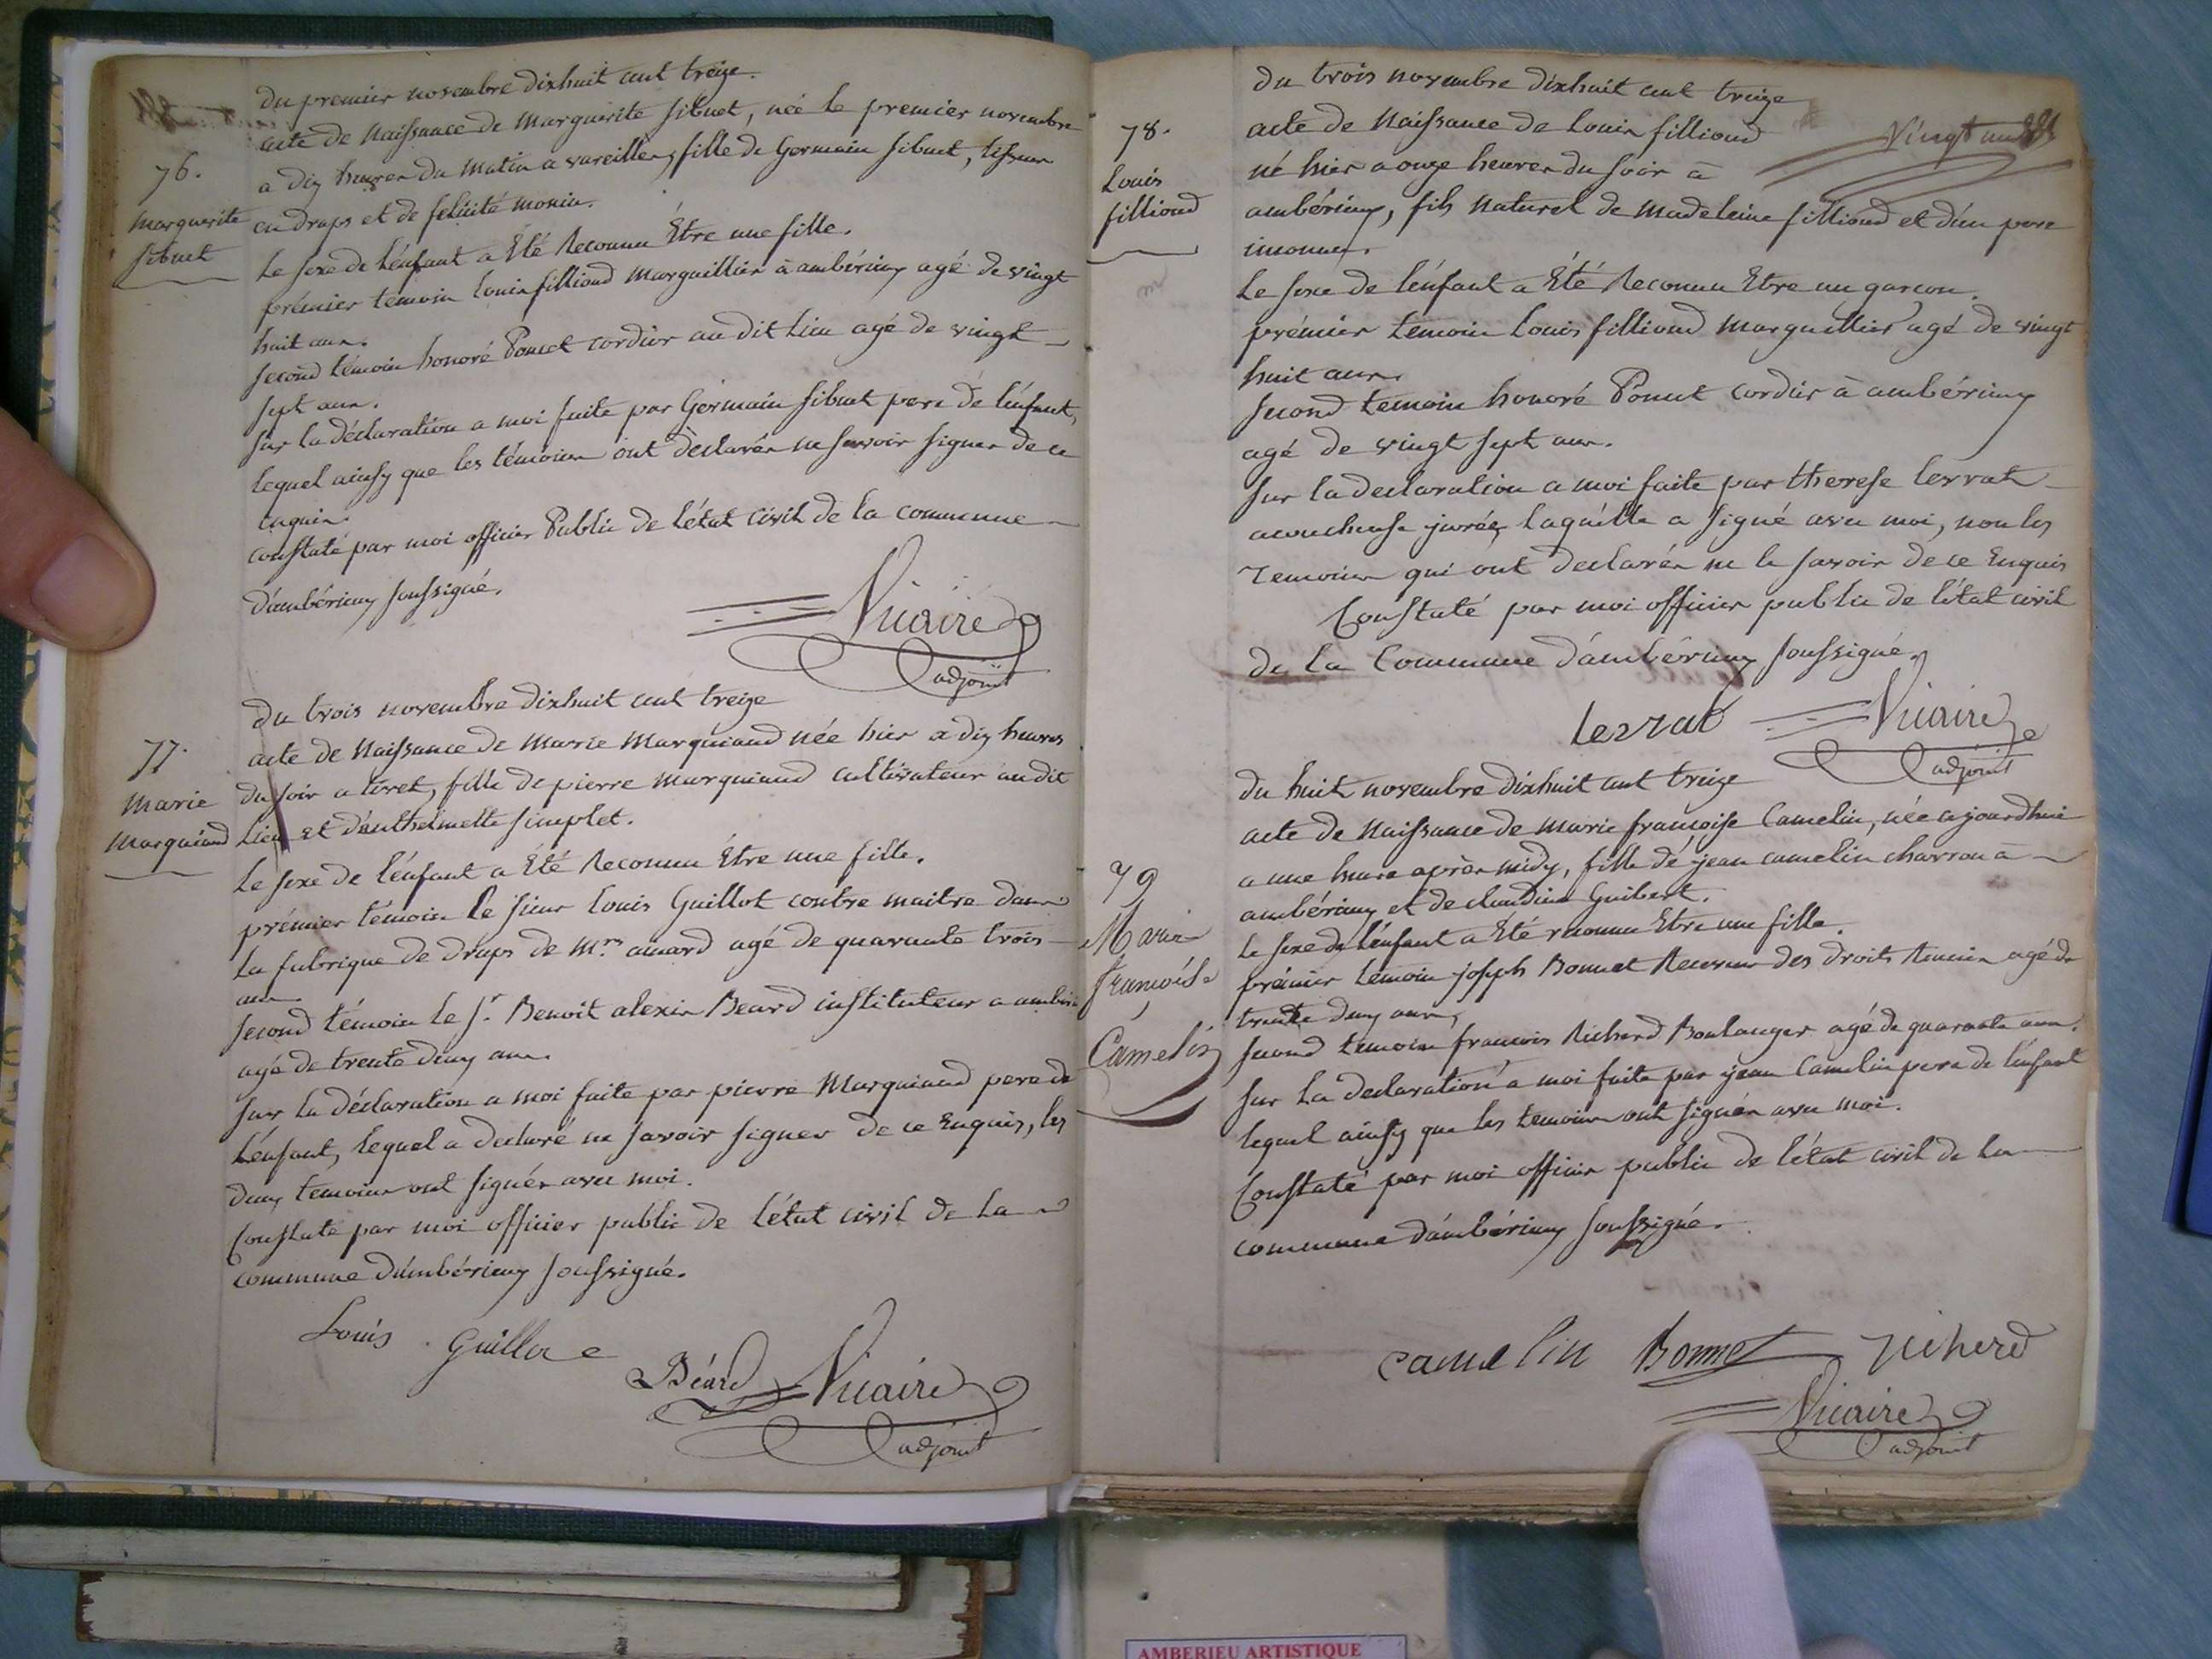 du premier novembre dixhuit cent treize.
acte de Naissance de Marguerite Sibuet, née le premier novembre
a dix heures du matin a vareilles, fille de Germain Sibuet, tisseur
en draps et de felicité monin.
76.
Marguerite
Sibuet
Le sexe de l'énfant a Été Reconnu Être une fille.
prémier témoin Louis fillioud Marguillier à ambérieux agé de vingt
huit ans.
second témoin honoré Poncet cordier au dit Lieu agé de vingt
sept ans.
sur la déclaration a moi faite par Germain Sibuet pere de l'énfant,
lequel ainsy que les témoins ont déclarés ne savoir signer de ce
enquis.
constaté par moi officier Public de l'état civil de la commune
d'ambérieux soussigné.
Vicaire
adjoint
du trois novembre dixhuit cent treize
77.
Marie
Marquiand
acte de Naissance de Marie Marquiand née hier a dix heures
du soir a tiret, fille de pierre Marquiand cultivateur au dit
Lieu et d'anthelmette Simplet.
Le sexe de l'énfant a Été Reconnu Être une fille.
prémier témoin Le sieur Louis Guillot contre maitre dans
La fabrique de draps de Mrs. agé de quarante trois
ans
second témoin le Sr. Benoit alexis Beard instituteur a
agé de trente deux ans.
sur la déclaration a moi faite par pierre Marquiand pere de
L'énfant, lequel a declaré ne savoir signer de ce Enquis, les
deux temoins ont signés avec moi.
Constaté par moi officier public de l'état civil de la
commune d'ambérieux soussigné.
Louis Guillot
Béard Vicaire
adjoint
du trois novembre dixhuit cent treize
Vingt un
78.
Louis
fillioud
acte de Naissance de Louis fillioud
né hier a onze heures du soir à
ambérieux, fils naturel de Madeleine fillioud et d'un pere
inconnu.
Le sexe de l'énfant a Été Reconnu Etre un garcon.
prémier temoin Louis fillioud Marguillier agé de vingt
huit ans.
second temoin honoré Poncet cordier à ambérieux
agé de vingt sept ans.
sur la declaration a moi faite par therese Lerrat
acoucheuse jurée, laquélle a signé avec moi, non les
Temoins qui ont declarés ne le savoir de ce Enquis
Constaté par moi officier public de l'état civil
de la Commune d'ambérieux soussigné.
Lerrat Vicaire
adjoint
du huit novembre dixhuit cent treize
79
Marie
françoise
Camelin
acte de Naissance de Marie françoise Camelin, née ajourdhui
a une heure après midy, fille de jean camelin charron a
ambérieux et de claudine Guibert.
Le sexe de l'énfant a Eté reconnu Etre une fille.
prémier temoin joseph Bonnet Receveur des droits Reunis agé de
trente deux ans,
second temoin francois Richerd Boulanger agé de quarante ans.
sur la declaration a moi faite par jean Camelin pere de l'énfant
lequel ainsy que les temoins ont signés avec moi.
Constaté par moi officier public de l'état civil de la
commune d'ambérieux soussigné.
camelin Bonnet richerd
Vicaire
adjoint
AMBERIEU ARTISTIQUE